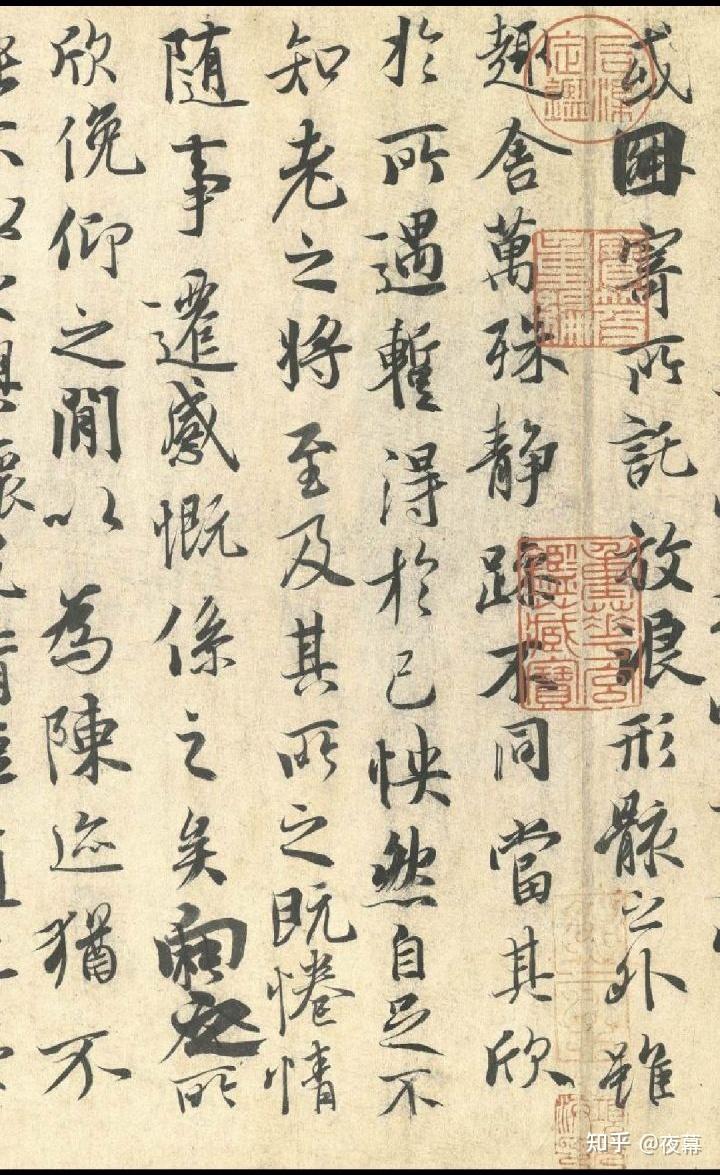 或因寄所託放浪形骸之外雖
趣舍萬殊静躁不同當其欣
於所遇暫得於己怏然自足不
知老之將至及其所之既惓情
随事遷感慨係之矣向之所
欣俛仰之閒以為陳迹猶不
知乎 @夜幕